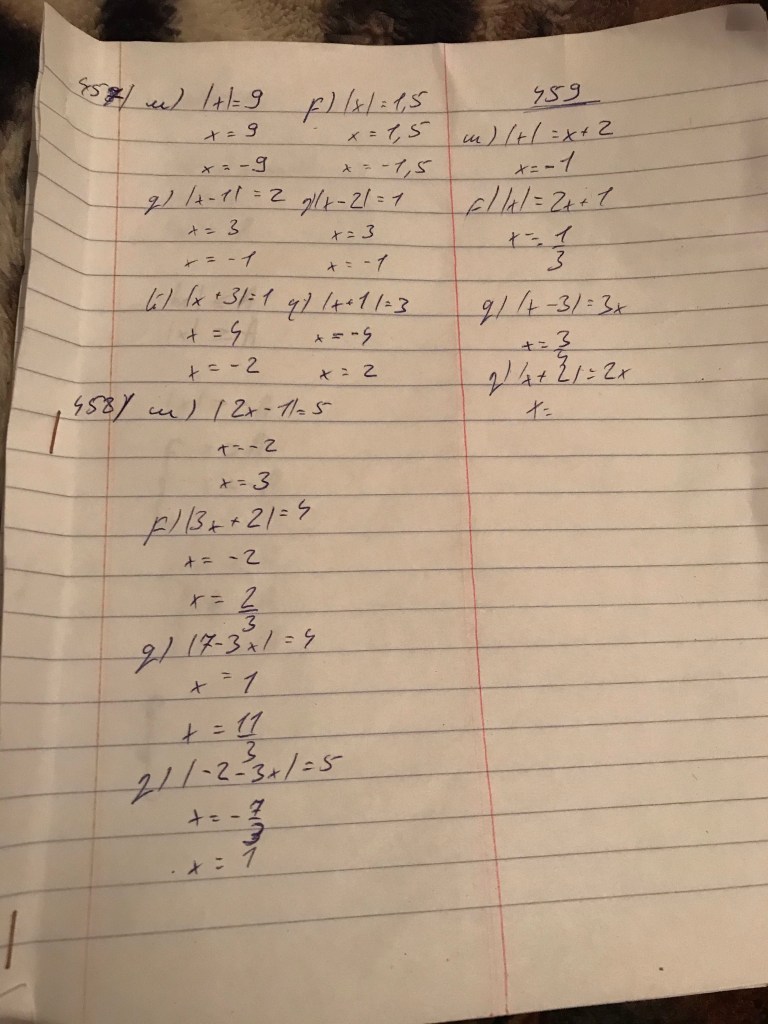 457) ա) |x|=9 բ) |x|=1,5
x=9 x=1,5
x=-9 x=-1,5
գ) |x-1|=2 դ) |x-2|=1
x=3 x=3
x=-1 x=-1
ե) |x+3|=1 զ) |x+1|=3
x=4 x=-4
x=-2 x=2
458) ա) |2x-1|=5
x=-2
x=3
բ) |3x+2|=4
x=-2
x=2/3
գ) |7-3x|=4
x=1
x=11/3
դ) |-2-3x|=5
x=-7/3
x=1
459
ա) |x|=x+2
x=-1
բ) |x|=2x+1
x=-1/3
գ) |x-3|=3x
x=3/4
դ) |x+2|=2x
x=